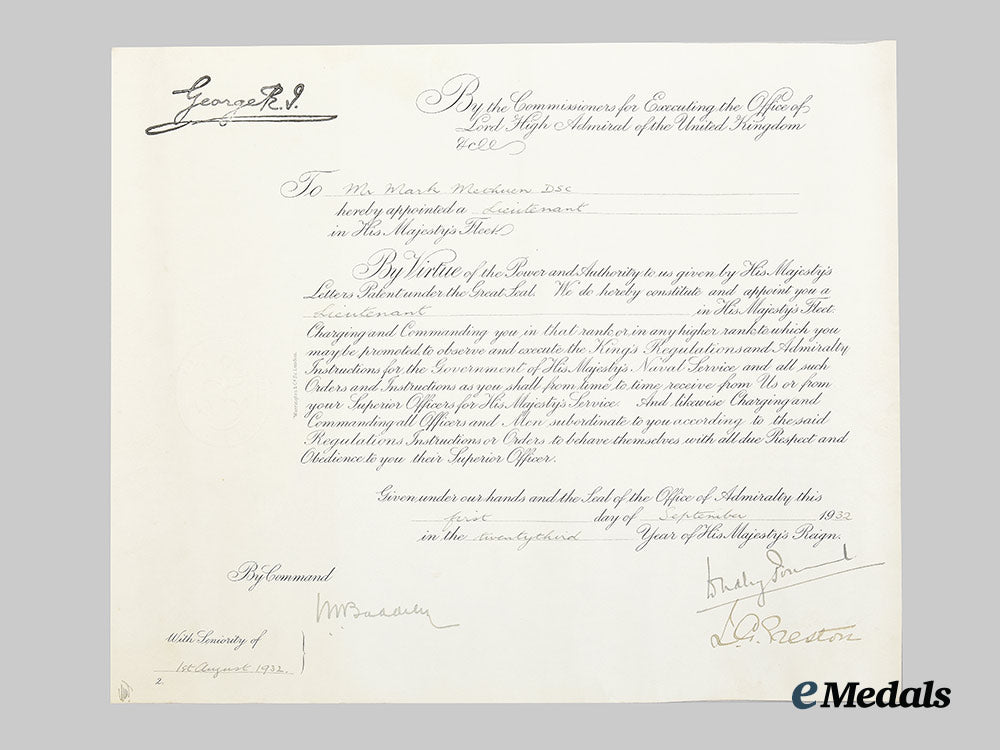 George R.I.
By the Commissioners for Executing the Office of
Lord High Admiral of the United Kingdom
&c &c
To Mr Mark Methuen DSC
hereby appointed a Lieutenant
in His Majesty's Fleet
By Virtue of the Power and Authority to us given by His Majesty's
Letters Patent under the Great Seal. We do hereby constitute and appoint you a
Lieutenant in His Majesty's Fleet.
Charging and Commanding you in that rank or in any higher rank to which you
may be promoted to observe and execute the King's Regulations and Admiralty
Instructions for the Government of His Majesty's Naval Service and all such
Orders and Instructions as you shall from time to time receive from Us or from
your Superior Officers for His Majesty's Service. And likewise Charging and
Commanding all Officers and Men subordinate to you according to the said
Regulations Instructions or Orders to behave themselves with all due Respect and
Obedience to you their Superior Officer.
Given under our hands and the Seal of the Office of Admiralty this
first day of September 1932
in the twentythird Year of His Majesty's Reign.
By Command
Dudley Pound
L.G. Preston
With Seniority of
1st August 1932.
2.
eMedals